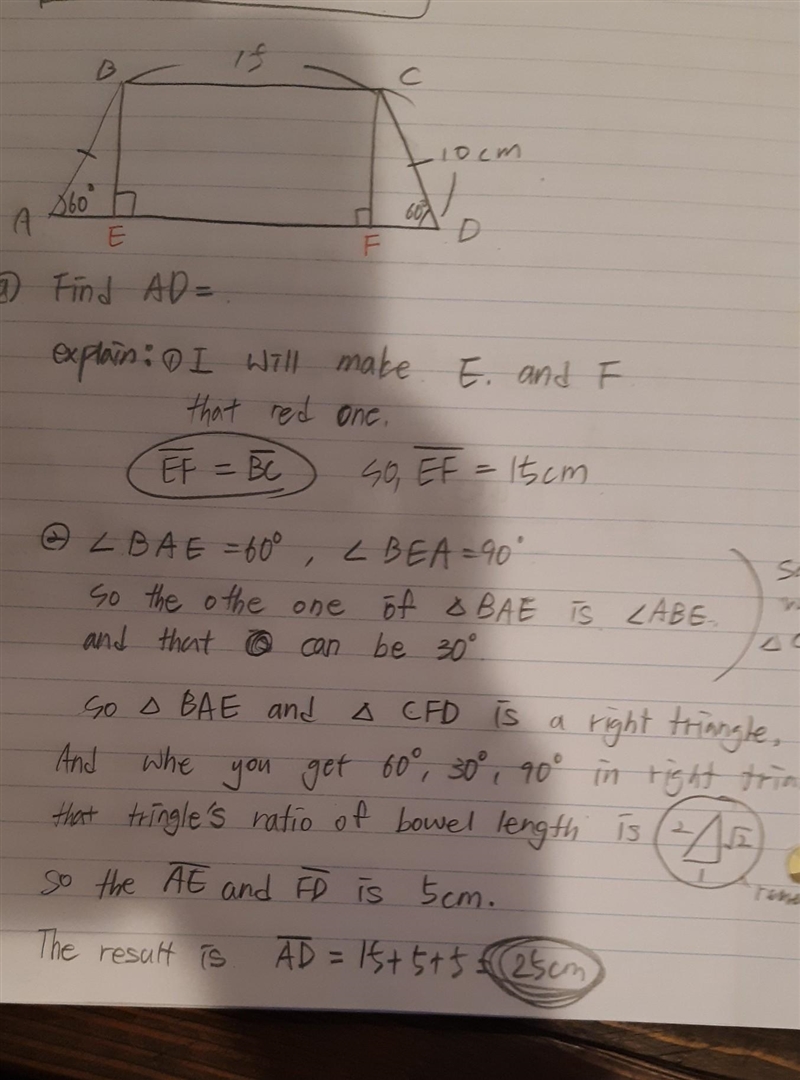 15
B
C
10cm
60°
60°
A
E
F
D
Find AD=
explain: ① I will make E. and F
that red one.
EF = BC so, EF = 15cm
② ∠BAE=60°, ∠BEA=90°
so the othe one of △BAE is ∠ABE.
and that can be 30°
so △ BAE and △ CFD is a right triangle,
And whe you get 60°, 30°, 90° in right
that tringle's ratio of bowel length is 2 √2
1
so the AE and FD is 5cm.
The result is AD = 15+5+5 = 25cm